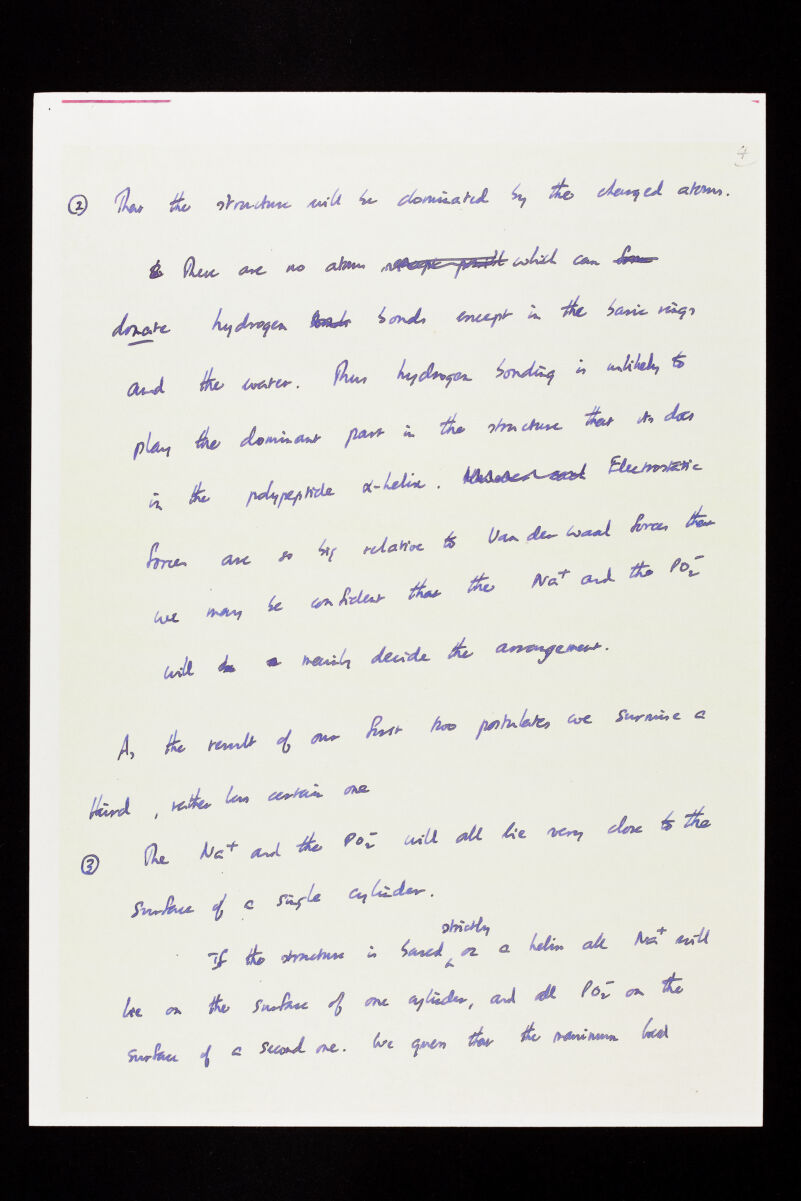 4
② That the structure will be dominated by the charged atoms.
There are no atoms which can
donate hydrogen bonds except in the basic rings
and the water. Thus hydrogen bonding is unlikely to
play the dominant part in the structure that its does
in the polypeptide α-helix. Electrostatic
forces are so big relative to Van der Waal forces that
we may be confident that the Na⁺ and the PO₂⁻
will mainly decide the arrangement.
As the result of our first two postulates we surmise a
third, rather less certain one
③ The Na⁺ and the PO₂⁻ will all lie very close to the
surface of a single cylinder.
If the structure is based strictly on a helix all Na⁺ will
lie on the surface of one cylinder, and all PO₂⁻ on the
surface of a second one. We guess that the maximum